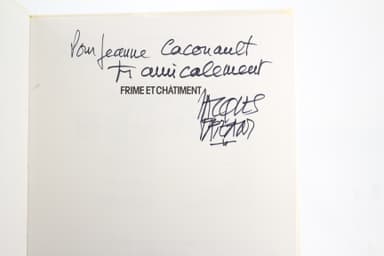 Pour Jeanne Caconault
Tr amicalement
FRIME ET CHÂTIMENT
JACQUES